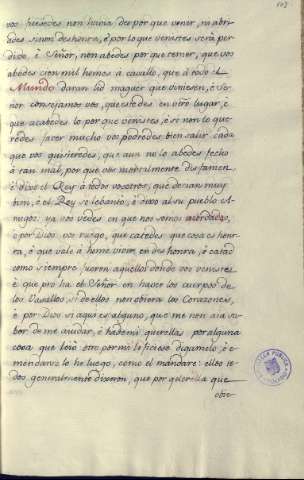 vos huésedes non havia de porque venir, ni abri-
ades sinon deshonra, è por lo que venistes será per-
dido, è Señor, non abedes porque temer, que vos
abedes cien mil homes à cavallo, que à todo el
Mundo daran lid maguer que viniesen, è Se-
ñor consejamos vos, que estedes en vuestro lugar, è
que acabedes lo porque venistes, è si non lo que-
redes facer mucho vos podredes bien salir cada
que vos quisieredes, que aun no lo abedes fecho
à tan mal, porque vos mortalmente
è dixo el Rey à todos vosotros, que decian muy
bien, è el Rey se lebantó, è dixo al su pueblo A-
migos, ya vos vedes en que nos somos acordados,
è por Dios vos ruego, que catedes que cosa es honr-
ra, è que vale à home vivir en deshonra, è catad
como siempre fueron aquellos donde vos venistes
è que pro ha el Señor en haver los cuerpos de
los Vasallos, si de ellos non obiera los Corazones,
è por Dios si aqui es alguno, que me non aia sa-
bor de me aiudar, è hade mi querella por alguna
cosa que Yo, ò otro por mi le ficiese digamelo, è e-
mendarselo he luego, como él mandare: ellos to-
dos generalmente dixeron, que por querella que
obie-